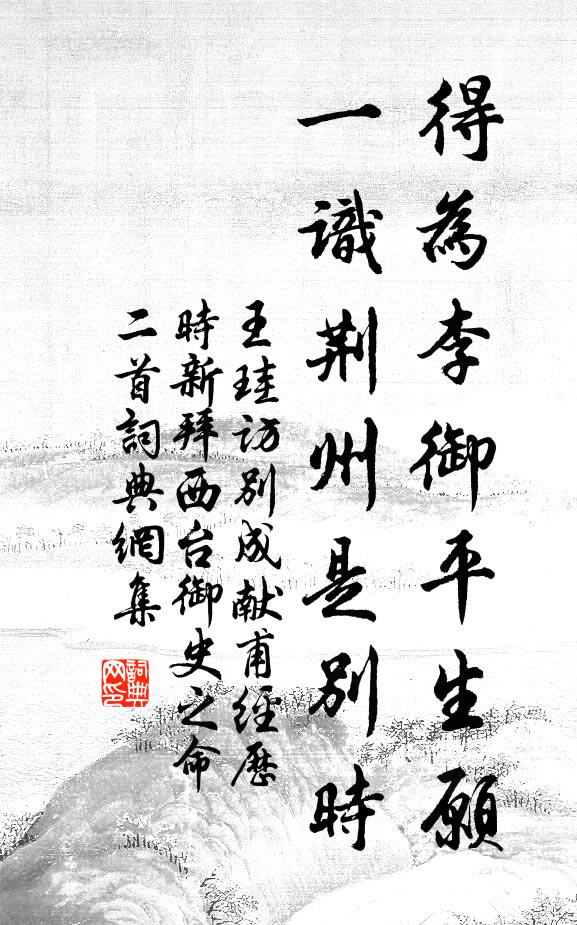 得為李御平生願
一識荆州是別時
王珪訪別成献甫經歷
時新拜西台御史之命
二首詞典網集
詞典网印